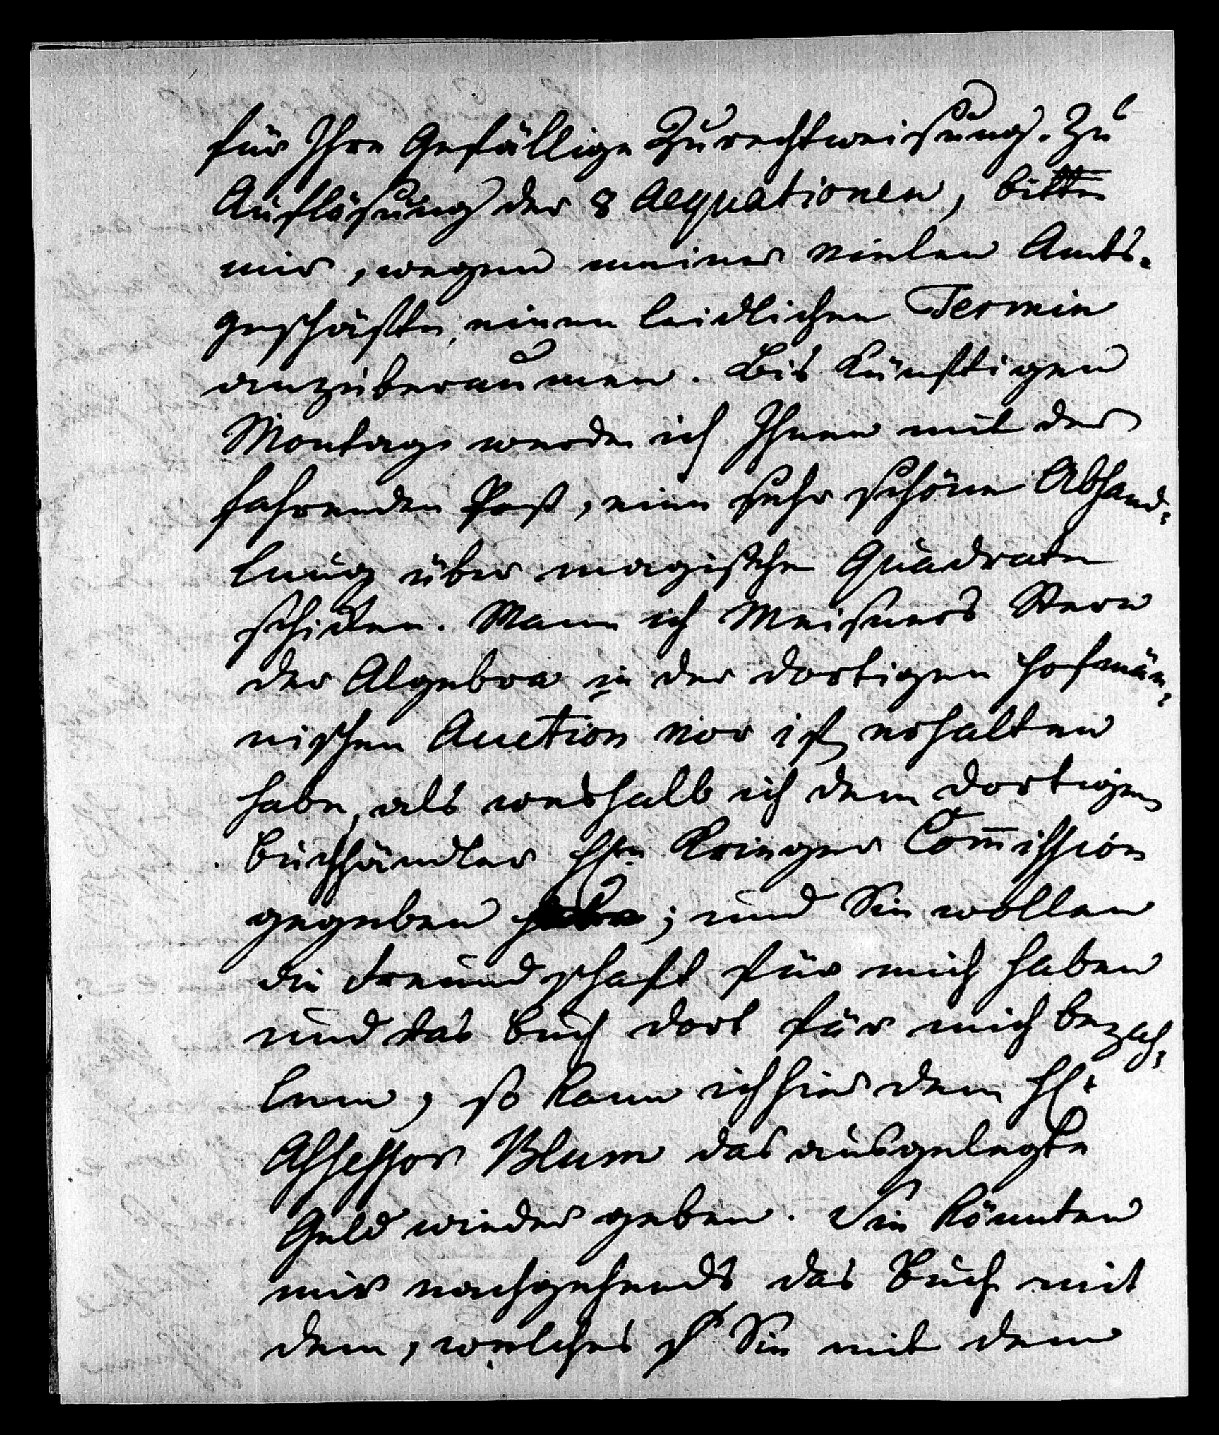 für Ihre Gefällige Zurechtweisung. Zu
Auflösung der 8 Aequationen, bitte
mir, wegen meiner vielen Amts-
geschäfte, einen leidlichen Termin
anzuberaumen. Bis künftigen
Montag werde ich Ihnen mit der
fahrenden Post, eine sehr schöne Abhand-
lung über magische Quadrate
schicken. Wann ich Meisners Stern
der Algebra in der dortigen Hofmän-
nischen Auction vor ist erhalten
habe, als weshalb ich dem dortigen
Buchhändler Hrn Krieger Com̅ission
gegeben habe; und Sie wollen
die Freundschaft für mich haben
und das Buch dort für mich bezah-
len, so kann ich hier dem H.
Assessor Blum das ausgelegte
Geld wieder geben. Sie könnten
mir nachgehends das Buch mit
dem, welches Sie mit dem